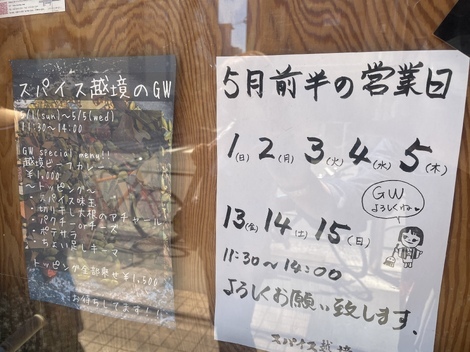 スパイス越境のGW
5/1(sun)~5/5(wed)
11:30~14:00
GW special menu!!
越境ビーフカレー
¥1,000
~トッピング~
・スパイス味玉
・切り干し大根のアチャール
・パクチーorチーズ
・ポテサラ
・ちょい足しキーマ
トッピング全部乗せ¥1,500
お待ちしてます!!
5月前半の営業日
1(日) 2(月) 3(火) 4(水) 5(木)
GW
よろしくねー
13(金) 14(土) 15(日)
11:30~14:00
よろしくお願い致します。
スパイス越境